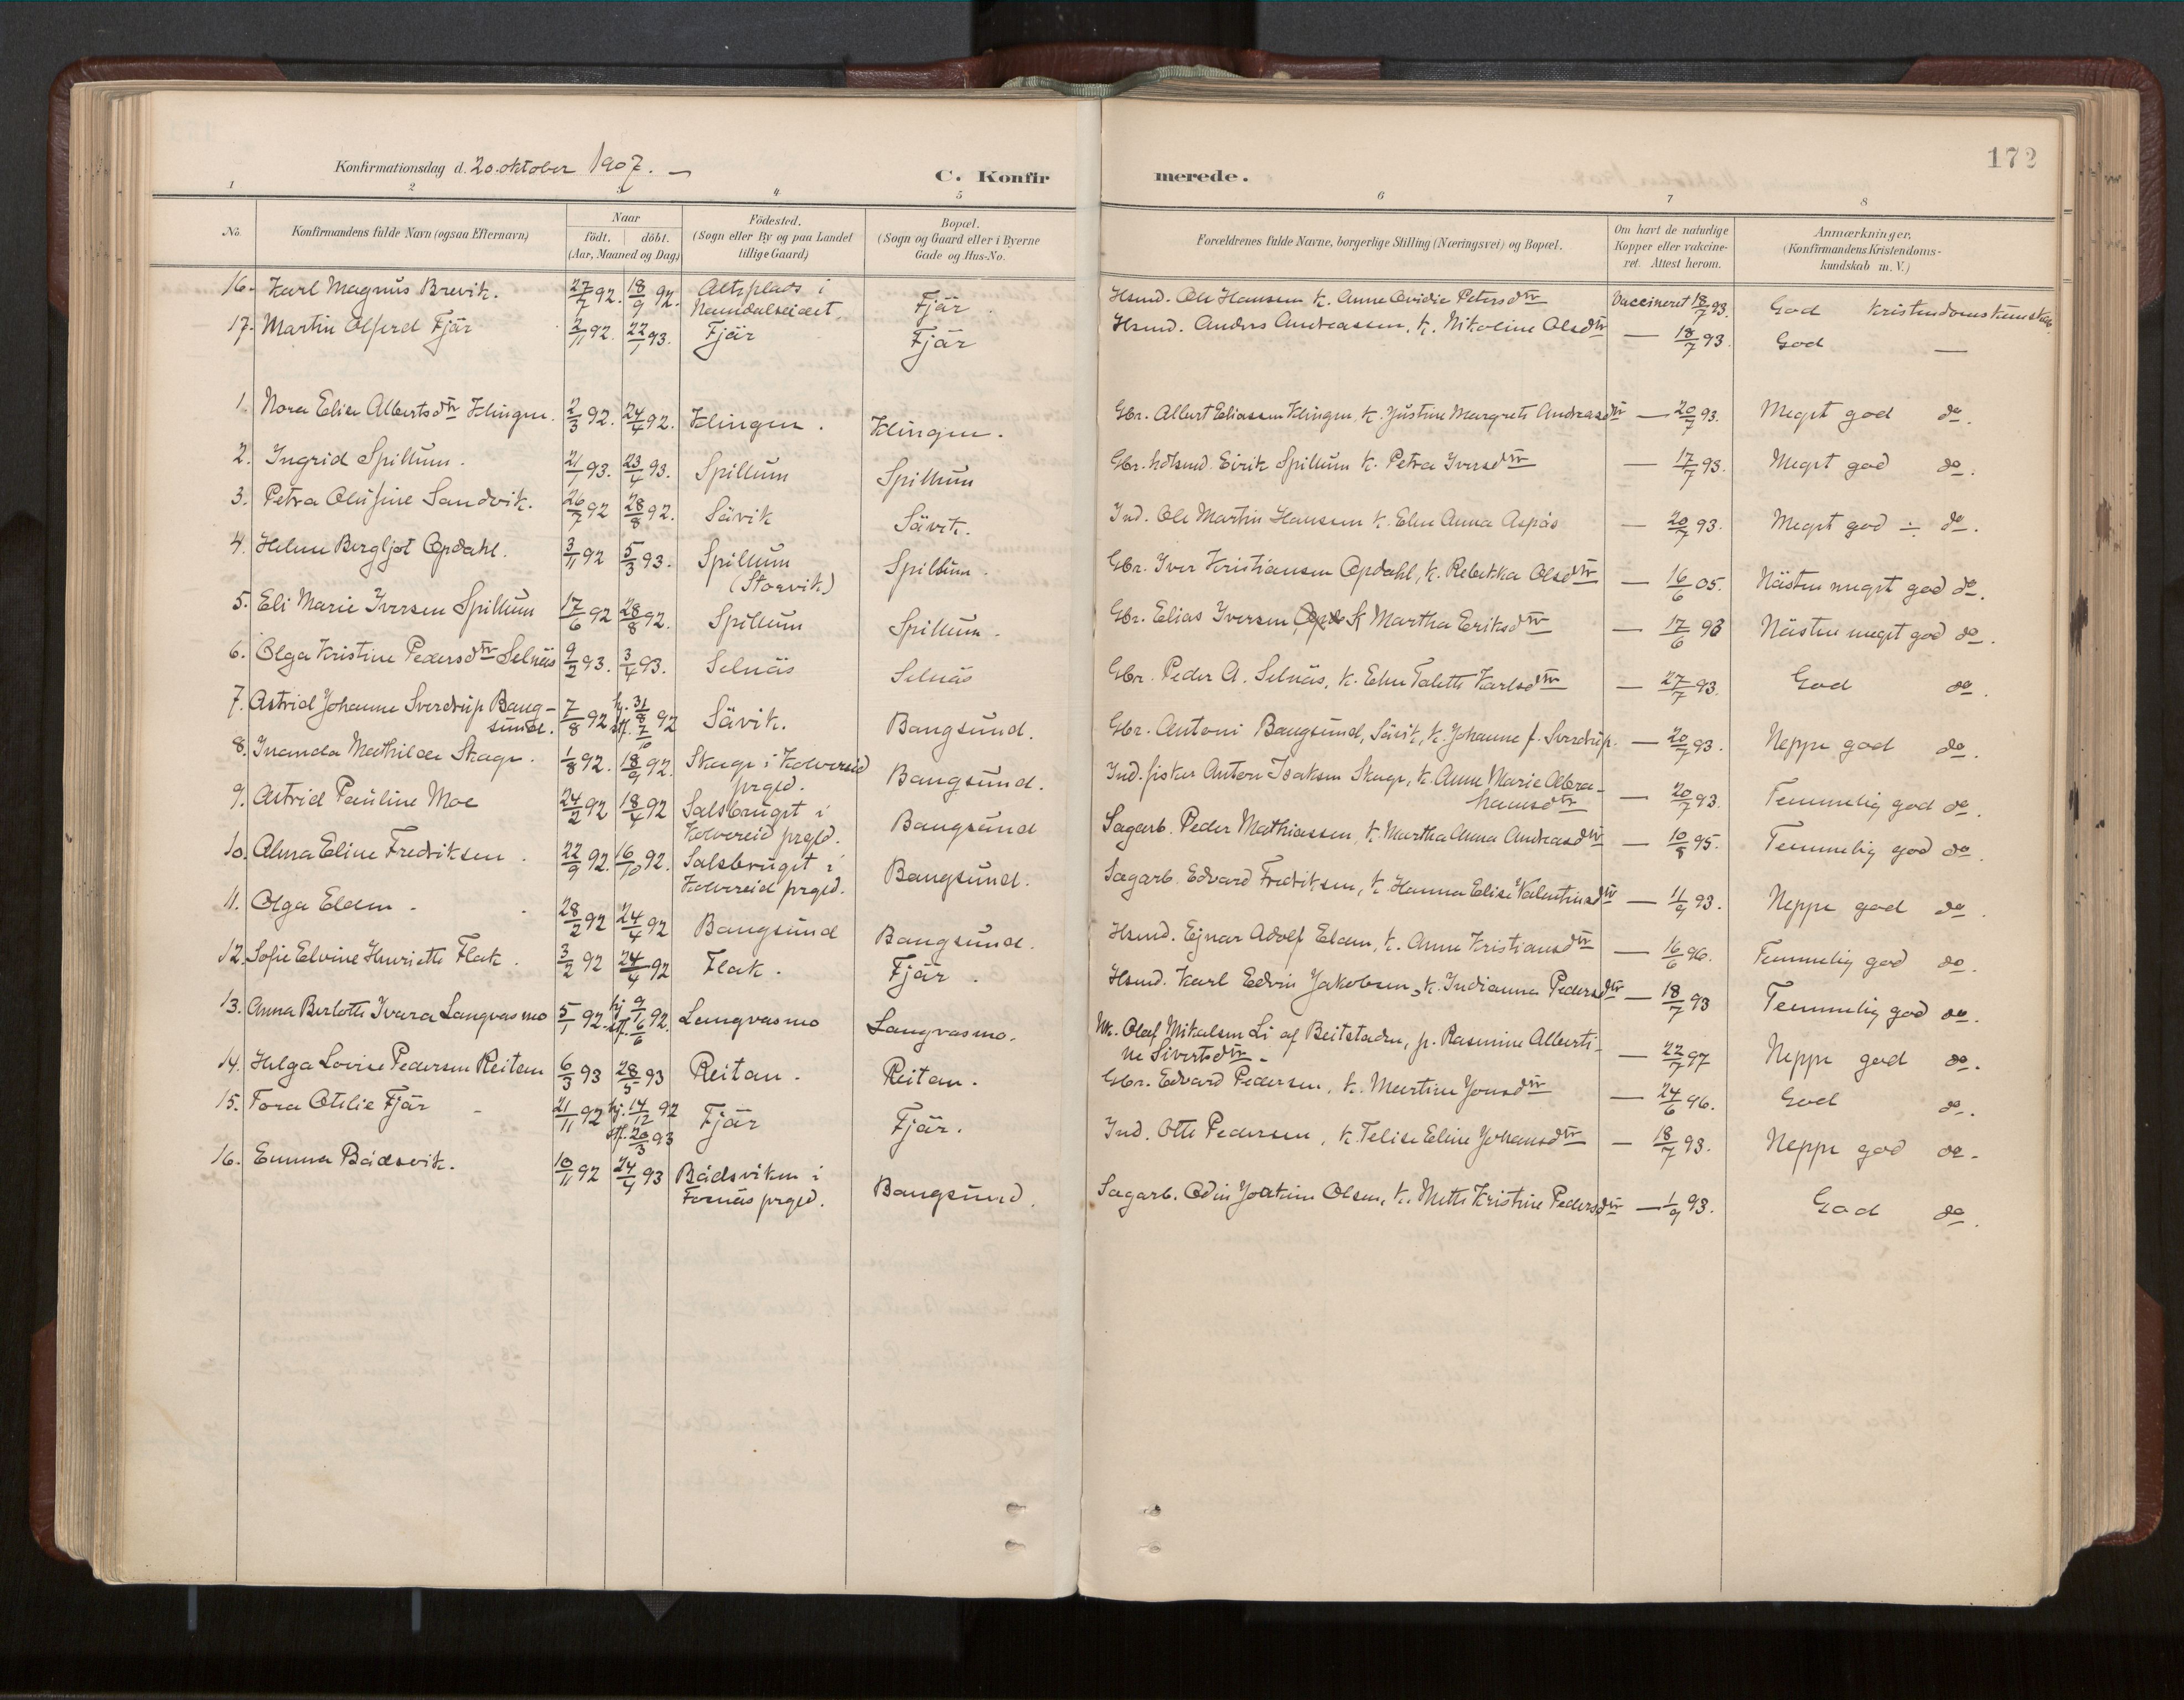 172
Konfirmationsdag d. 20. oktober 1907. —
C. Konfirmerede.
1 2 3 4 5 6 7 8
No. | Konfirmandens fulde Navn (ogsaa Efternavn) | Naar födt. döbt. (Aar, Maaned og Dag) | Födested. (Sogn eller By og paa Landet tillige Gaard) | Bopæl. (Sogn og Gaard eller i Byerne Gade og Hus-No. | Forældrenes fulde Navne, borgerlige Stilling (Næringsvei) og Bopæl. | Om havt de naturlige Kopper eller vakcineret. Attest herom. | Anmærkninger, (Konfirmandens Kristendomskundskab m. V.)
16. Karl Magnus Brevik. 27/7 92. 18/9 92. Altsplads i Namdalseidet. Fjär. Hsmd. Ole Hansen k. Anne Ovidie Petersdtr Vaccineret 18/7 93. God Kristendomskundskab
17. Martin Alfred Fjär 2/11 92. 22/1 93. Fjär Fjär Hsmd. Anders Andreassen, k. Nikoline Olsdtr — 18/7 93. God —
1. Nora Elise Albertsdtr Klingen. 2/3 92. 24/4 92. Klingen. Klingen. Gbr. Albert Eliassen Klingen, k. Justine Margrete Andreasdtr — 20/7 93. Meget god do.
2. Ingrid Spillum. 21/1 93. 23/4 93. Spillum Spillum Gbr. Eirik Spillum k. Petra Iversdtr — 17/7 93. Meget god do.
3. Petra Olufine Sandvik. 26/7 92 28/8 92. Sävik Sävik. Ind. Ole Martin Hansen k. Elen Anna Aspås — 20/7 93. Meget god ÷ do.
4. Helene Bergljot Opdahl. 3/11 92 5/3 93. Spillum (Storvik) Spillum. Gbr. Iver Kristiansen Opdahl, k. Rebekka Olsdtr — 16/6 05. Nästen meget god do.
5. Eli Marie Iversen Spillum 17/6 92 28/8 92. Spillum Spillum. Gbr. Elias Iversen k Martha Eriksdtr — 17/6 93 Nästen meget god do.
6. Olga Kristine Pedersdtr Selnäs 9/2 93. 3/4 93. Selnäs Selnäs Gbr. Peder A. Selnäs, k. Elen Talette Karlsdtr — 27/7 93. God do.
7. Astrid Johanne Sverdrup Bangsund. 7/8 92 hj. 31/8 stf. 7/10 92 Sävik. Bangsund. Gbr. Antoni Bangsund, Sävik, k. Johanne f. Sverdrup. — 20/7 93. Neppe god do.
8. Inanda Mathilde Skage. 1/8 92. 18/9 92. Skage i Kolvereid prgld. Bangsund. Ind. fisker Antern Isaksen Skage, k. Anne Marie Abrahamsdtr — 20/7 93. Temmelig god do.
9. Astrid Pauline Moe 24/2 92 18/4 92 Salsbruget i Kolvereid prgld. Bangsund Sagarb. Peder Mathiassen, k. Martha Anna Andreasdtr — 10/8 95. Temmelig god do.
10. Alma Eline Fredriksen. 22/9 92. 16/10 92. Salsbruget i Kolvereid prgld. Bangsund. Sagarb. Edvard Fredriksen, k. Hanna Elise Valentinsdtr — 11/9 93. Neppe god do.
11. Olga Elden. 28/2 92 24/4 92 Bangsund Bangsund. Hsmd. Ejnar Adolf Elden, k. Anne Kristiansdtr — 16/6 96. Temmelig god do.
12. Sofie Elvine Henriette Flak. 3/2 92 24/4 92 Flak. Fjär. Hsmd. Karl Edvin Jakobsen, k. Indianna Pedersdtr — 18/7 93 Temmelig god do.
13. Anna Berlotte Ivara Langvasmo 5/1 92. hj. 9/1 stf. 6/6 92. Langvasmo Langvasmo. Uk. Olaf Mikalsen Li af Beitstaden, p. Rasmine Albertine Sivertsdtr. — 22/7 97 Neppe god do.
14. Helga Lovise Pedersen Reitan 6/3 93 28/5 93 Reitan. Reitan. Gbr. Edvard Pedersen, k. Martine Jonsdtr — 24/6 96. God do.
15. Tora Otelie Fjär 21/11 92 hj. 14/12 92 stf. 20/3 93 Fjär Fjär. Ind. Otte Pedersen, k. Telise Eline Johansdtr — 18/7 93. Neppe god do.
16. Emma Bådsvik. 10/11 92 24/4 93 Bådsviken i Fosnäs prgld. Bangsund. Sagarb. Odin Joakim Olsen, k. Mette Kristine Pedersdtr — 1/9 93. God do.